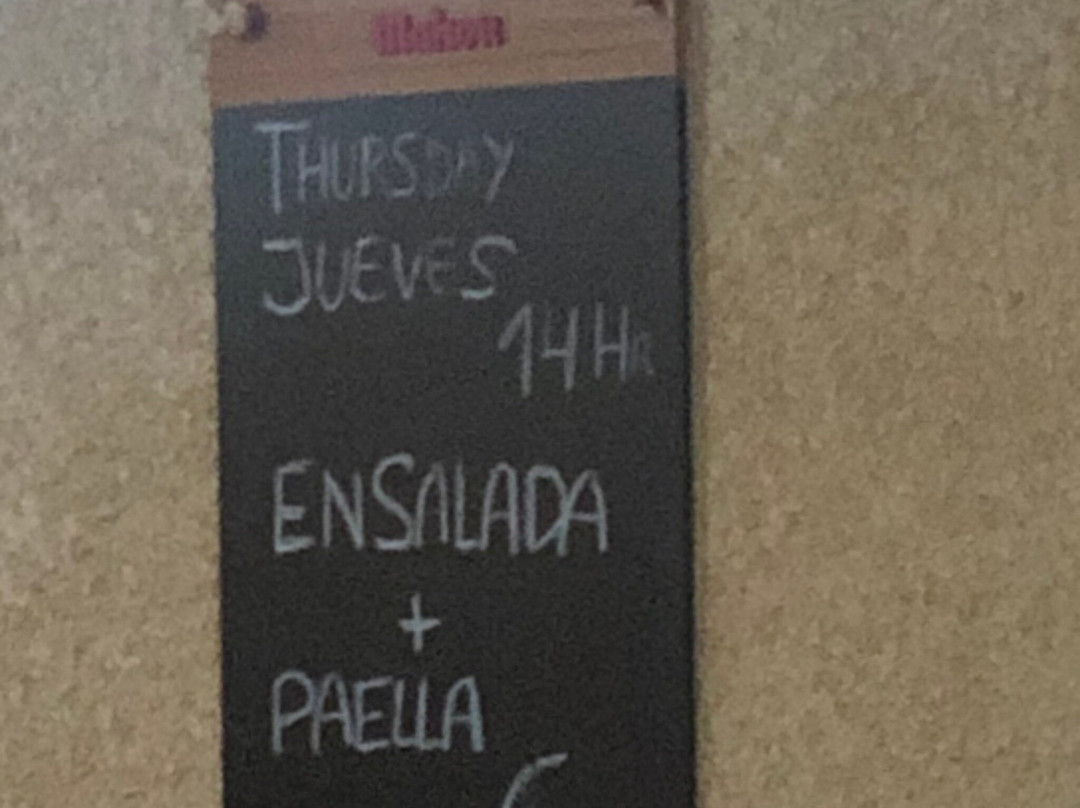 THURSDAY
JUEVES
14 HR
ENSALADA
+
PAELLA